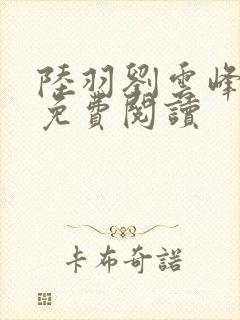 陸羽劉雲峰
免費閱讀
卡布奇諾